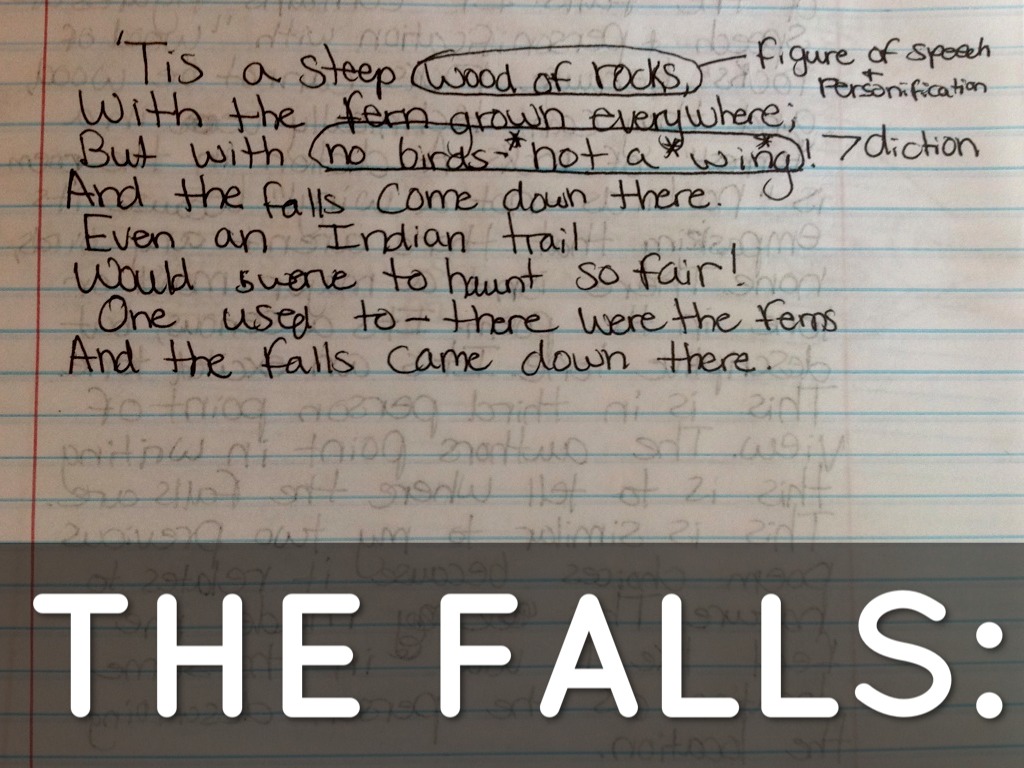 'Tis a steep wood of rocks, — figure of speech
+ Personification
With the fern grown everywhere;
But with no birds-*not a *wing*! > diction
And the falls come down there.
Even an Indian trail
Would swerve to haunt so fair!
One used to - there were the ferns
And the falls came down there.
THE FALLS: